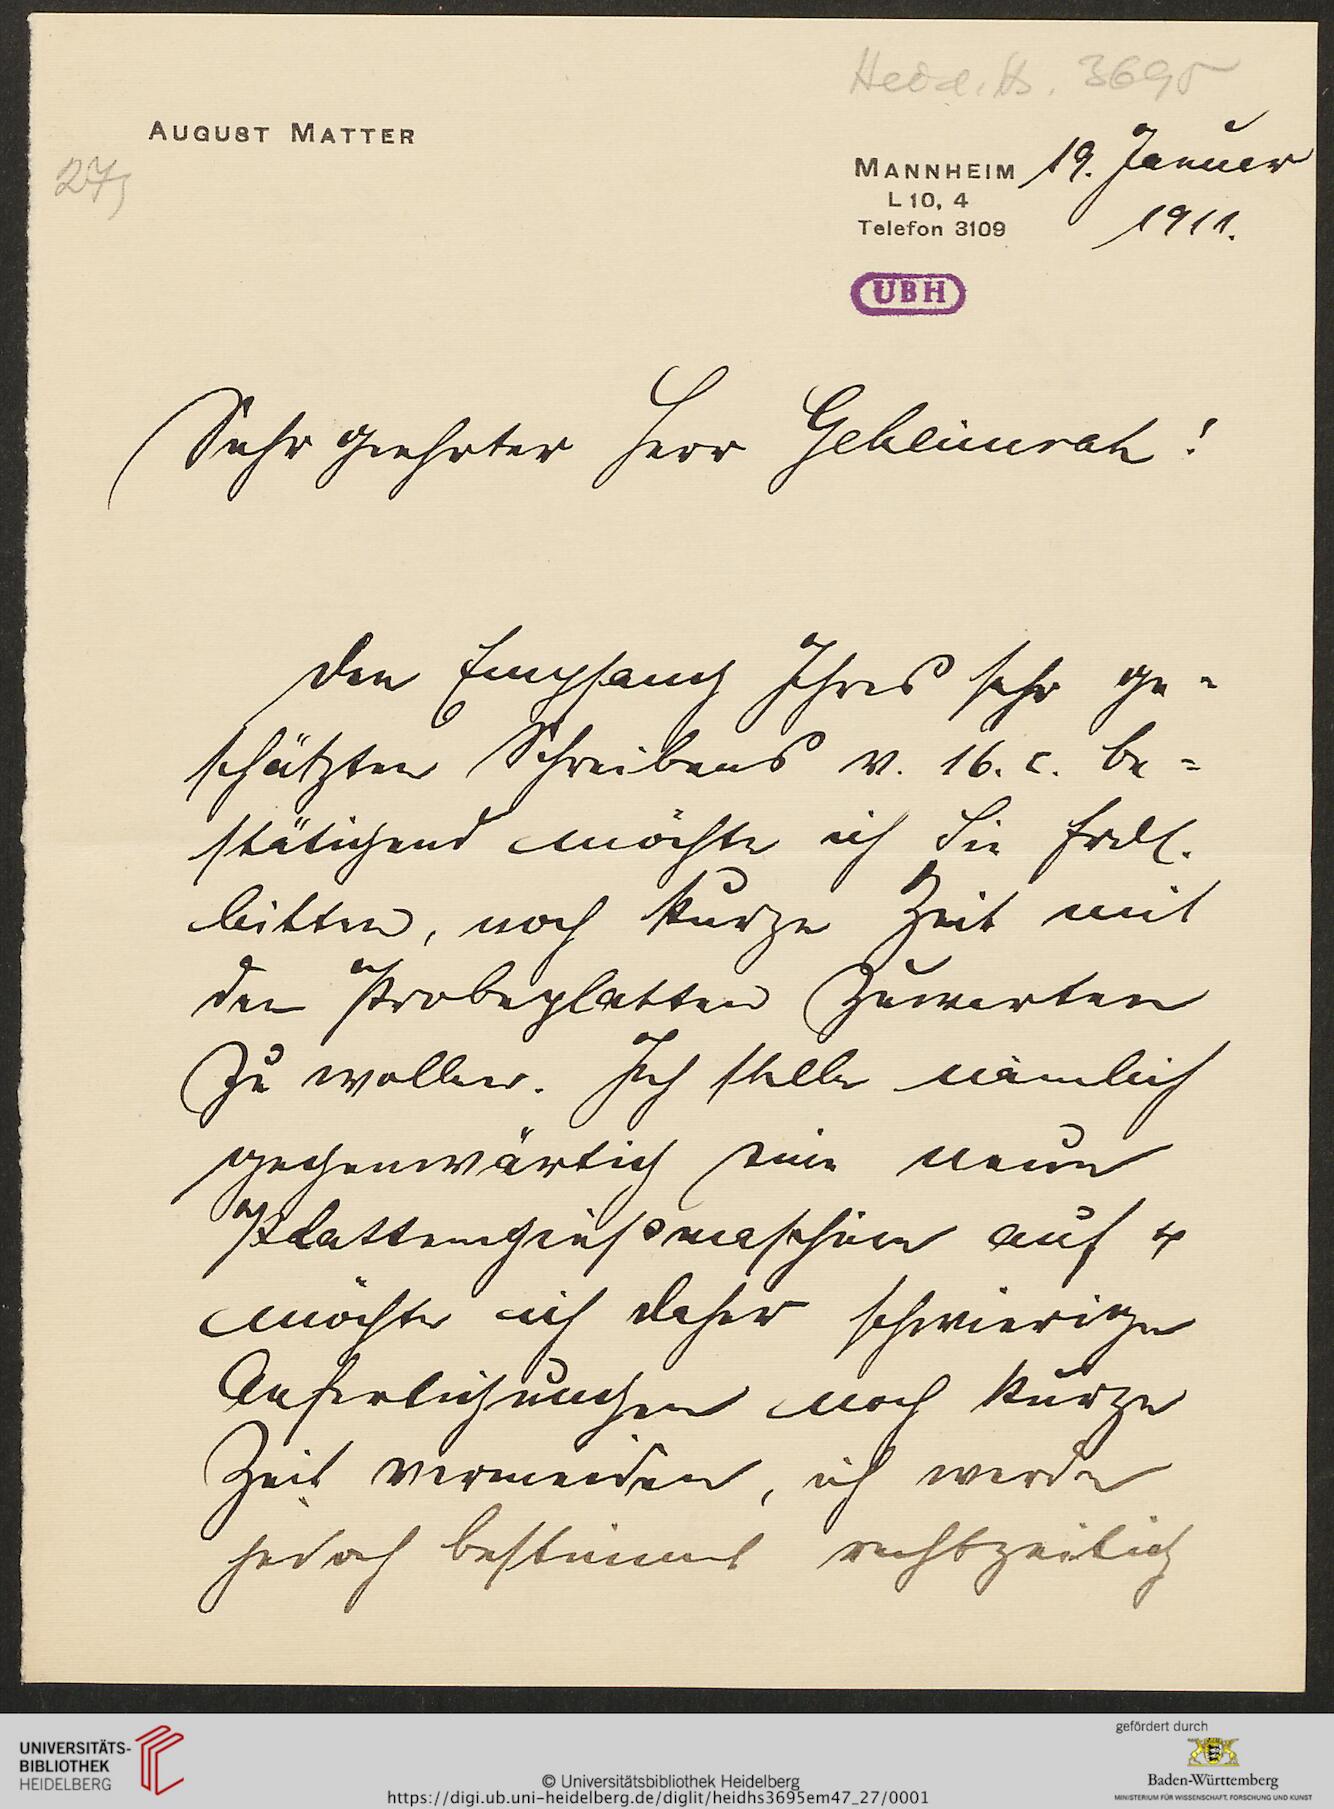 Heid. Hs. 3695
August Matter
27,
Mannheim 19. Januar
L 10, 4
Telefon 3109
1911.
UBH
Sehr geehrter Herr Geheimrat!
Den Empfang Ihres sehr ge=
schätzten Schreibens v. 16. c. be=
stätigend möchte ich Sie frdl.
bitten, noch kurze Zeit mit
den Probeplatten zuwarten
zu wollen. Ich stelle nämlich
gegenwärtig eine neue
Plattengießmaschine auf &
möchte ich daher schwierige
noch kurze
Zeit vermeiden, ich werde
jedoch bestimmt rechtzeitig
UNIVERSITÄTS-
BIBLIOTHEK
HEIDELBERG
© Universitätsbibliothek Heidelberg
https://digi.ub.uni-heidelberg.de/diglit/heidhs3695em47_27/0001
gefördert durch
Baden-Württemberg
MINISTERIUM FÜR WISSENSCHAFT, FORSCHUNG UND KUNST